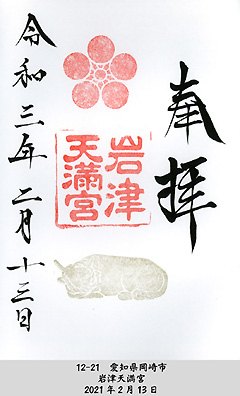 奉拝
岩津
天満宮
令和三年二月十三日
12-21 愛知県岡崎市
岩津天満宮
2021年2月13日